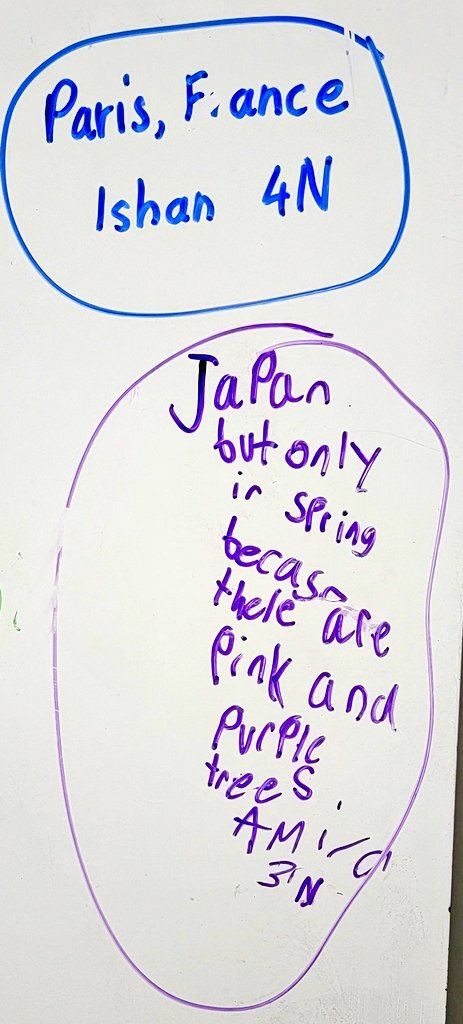 Paris, France
Ishan 4N
Japan
but only
in spring
becase
there are
Pink and
Purple
trees.
3N